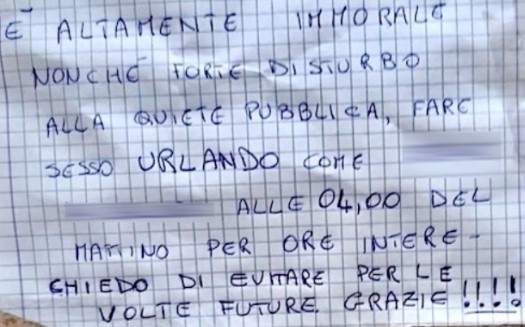 E' ALTAMENTE IMMORALE
NONCHÉ FORTE DISTURBO
ALLA QUIETE PUBBLICA, FARE
SESSO URLANDO COME
ALLE 04,00 DEL
MATTINO PER ORE INTERE -
CHIEDO DI EVITARE PER LE
VOLTE FUTURE. GRAZIE !!!!